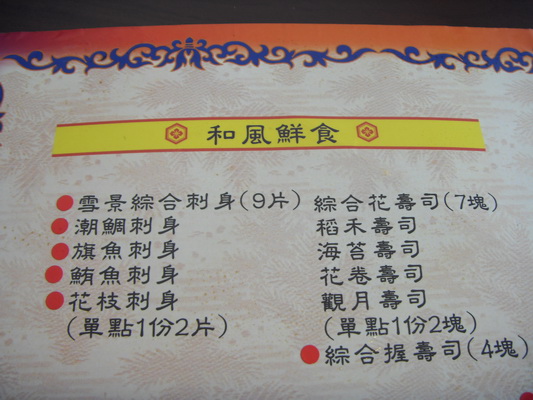 和風鮮食
雪景綜合刺身(9片)
潮鯛刺身
旗魚刺身
鮪魚刺身
花枝刺身
(單點1份2片)
綜合花壽司(7塊)
稻禾壽司
海苔壽司
花卷壽司
觀月壽司
(單點1份2塊)
綜合握壽司(4塊)